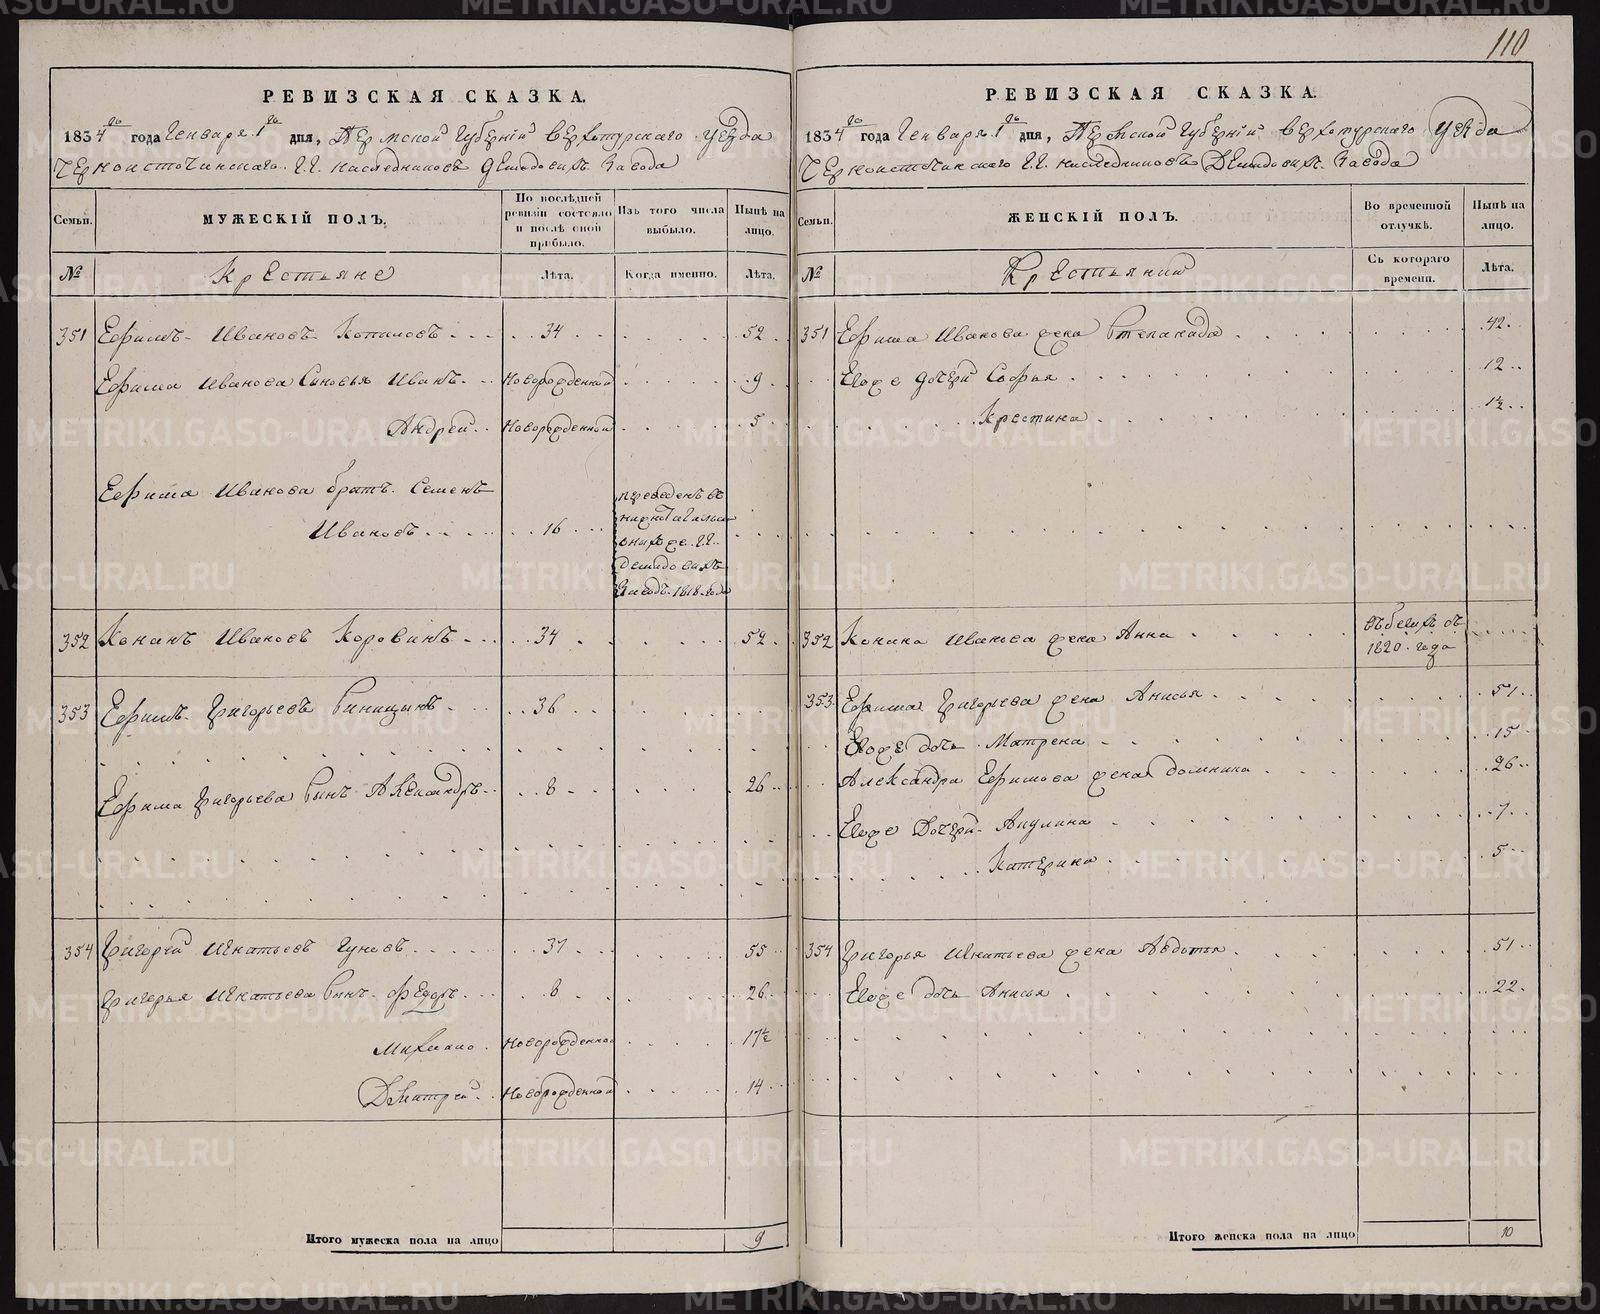 110
РЕВИЗСКАЯ СКАЗКА.
1834го года Генваря 1го дня, Пермской Губернїи Верхотурскаго уезда
Черноисточинскаго Г.Г. наследниковъ Демидовыхъ Завода
Семьи.
МУЖЕСКІЙ ПОЛЪ.
По послѣдней ревизіи состояло и послѣ оной прибыло.
Изъ того числа выбыло.
Нынѣ на лицо.
№
Крестьяне
Лѣта.
Когда именно.
Лѣта.
351 Ефимъ Ивановъ Копыловъ 34 52
Ефима Иванова Сыновья Иванъ Новорожденной 9
Андрей Новорожденной 5
Ефима Иванова братъ Семенъ
Ивановъ 16
переведенъ въ
Г.Г.
Демидовыхъ
Заводъ 1818 года
352 Кононъ Ивановъ Коровинъ 34 52
353 Ефимъ Григорьевъ Синицынъ 36
Ефима Григорьева Сынъ Александръ 8 26
354 Григорей Игнатьевъ Гуневъ 37 55
Григорья Игнатьева Сынъ Федоръ 8 26
Михайло Новорожденной 17½
Дмитрей Новорожденной 14
Итого мужеска пола на лицо 9
РЕВИЗСКАЯ СКАЗКА.
1834го года Генваря 1го дня, Пермской Губернїи Верхотурскаго уезда
Черноисточинскаго Г.Г. наследниковъ Демидовыхъ Завода
Семьи.
ЖЕНСКІЙ ПОЛЪ.
Во временной отлучкѣ.
Нынѣ на лицо.
№
Крестьянки
Съ котораго времени.
Лѣта.
351 Ефима Иванова жена Степанида 42
Егоже дочери Софья 12
Крестина 1½
352 Конона Иванова жена Анна въ бегахъ съ
1820 года
353 Ефима Григорьева жена Анисья 51
Егоже дочь Матрена 15
Александра Ефимова жена Домнина 26
Егоже Дочери Акулина 7
Катерина 5
354 Григорья Игнатьева жена Авдотья 51
Егоже дочь Анисья 22
Итого женска пола на лицо 10
METRIKI.GASO-URAL.RU